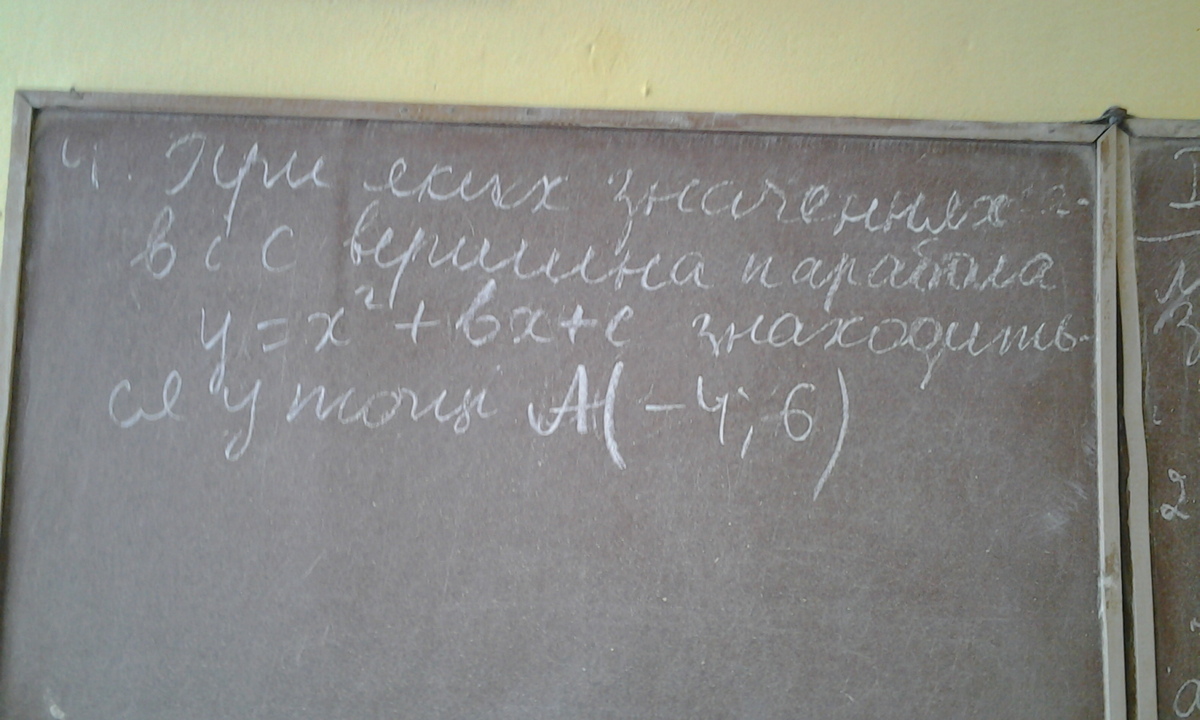 4. При яких значеннях
в і с вершина парабола
y = x² + вx + c знаходить-
ся у точці А(-4; 6)